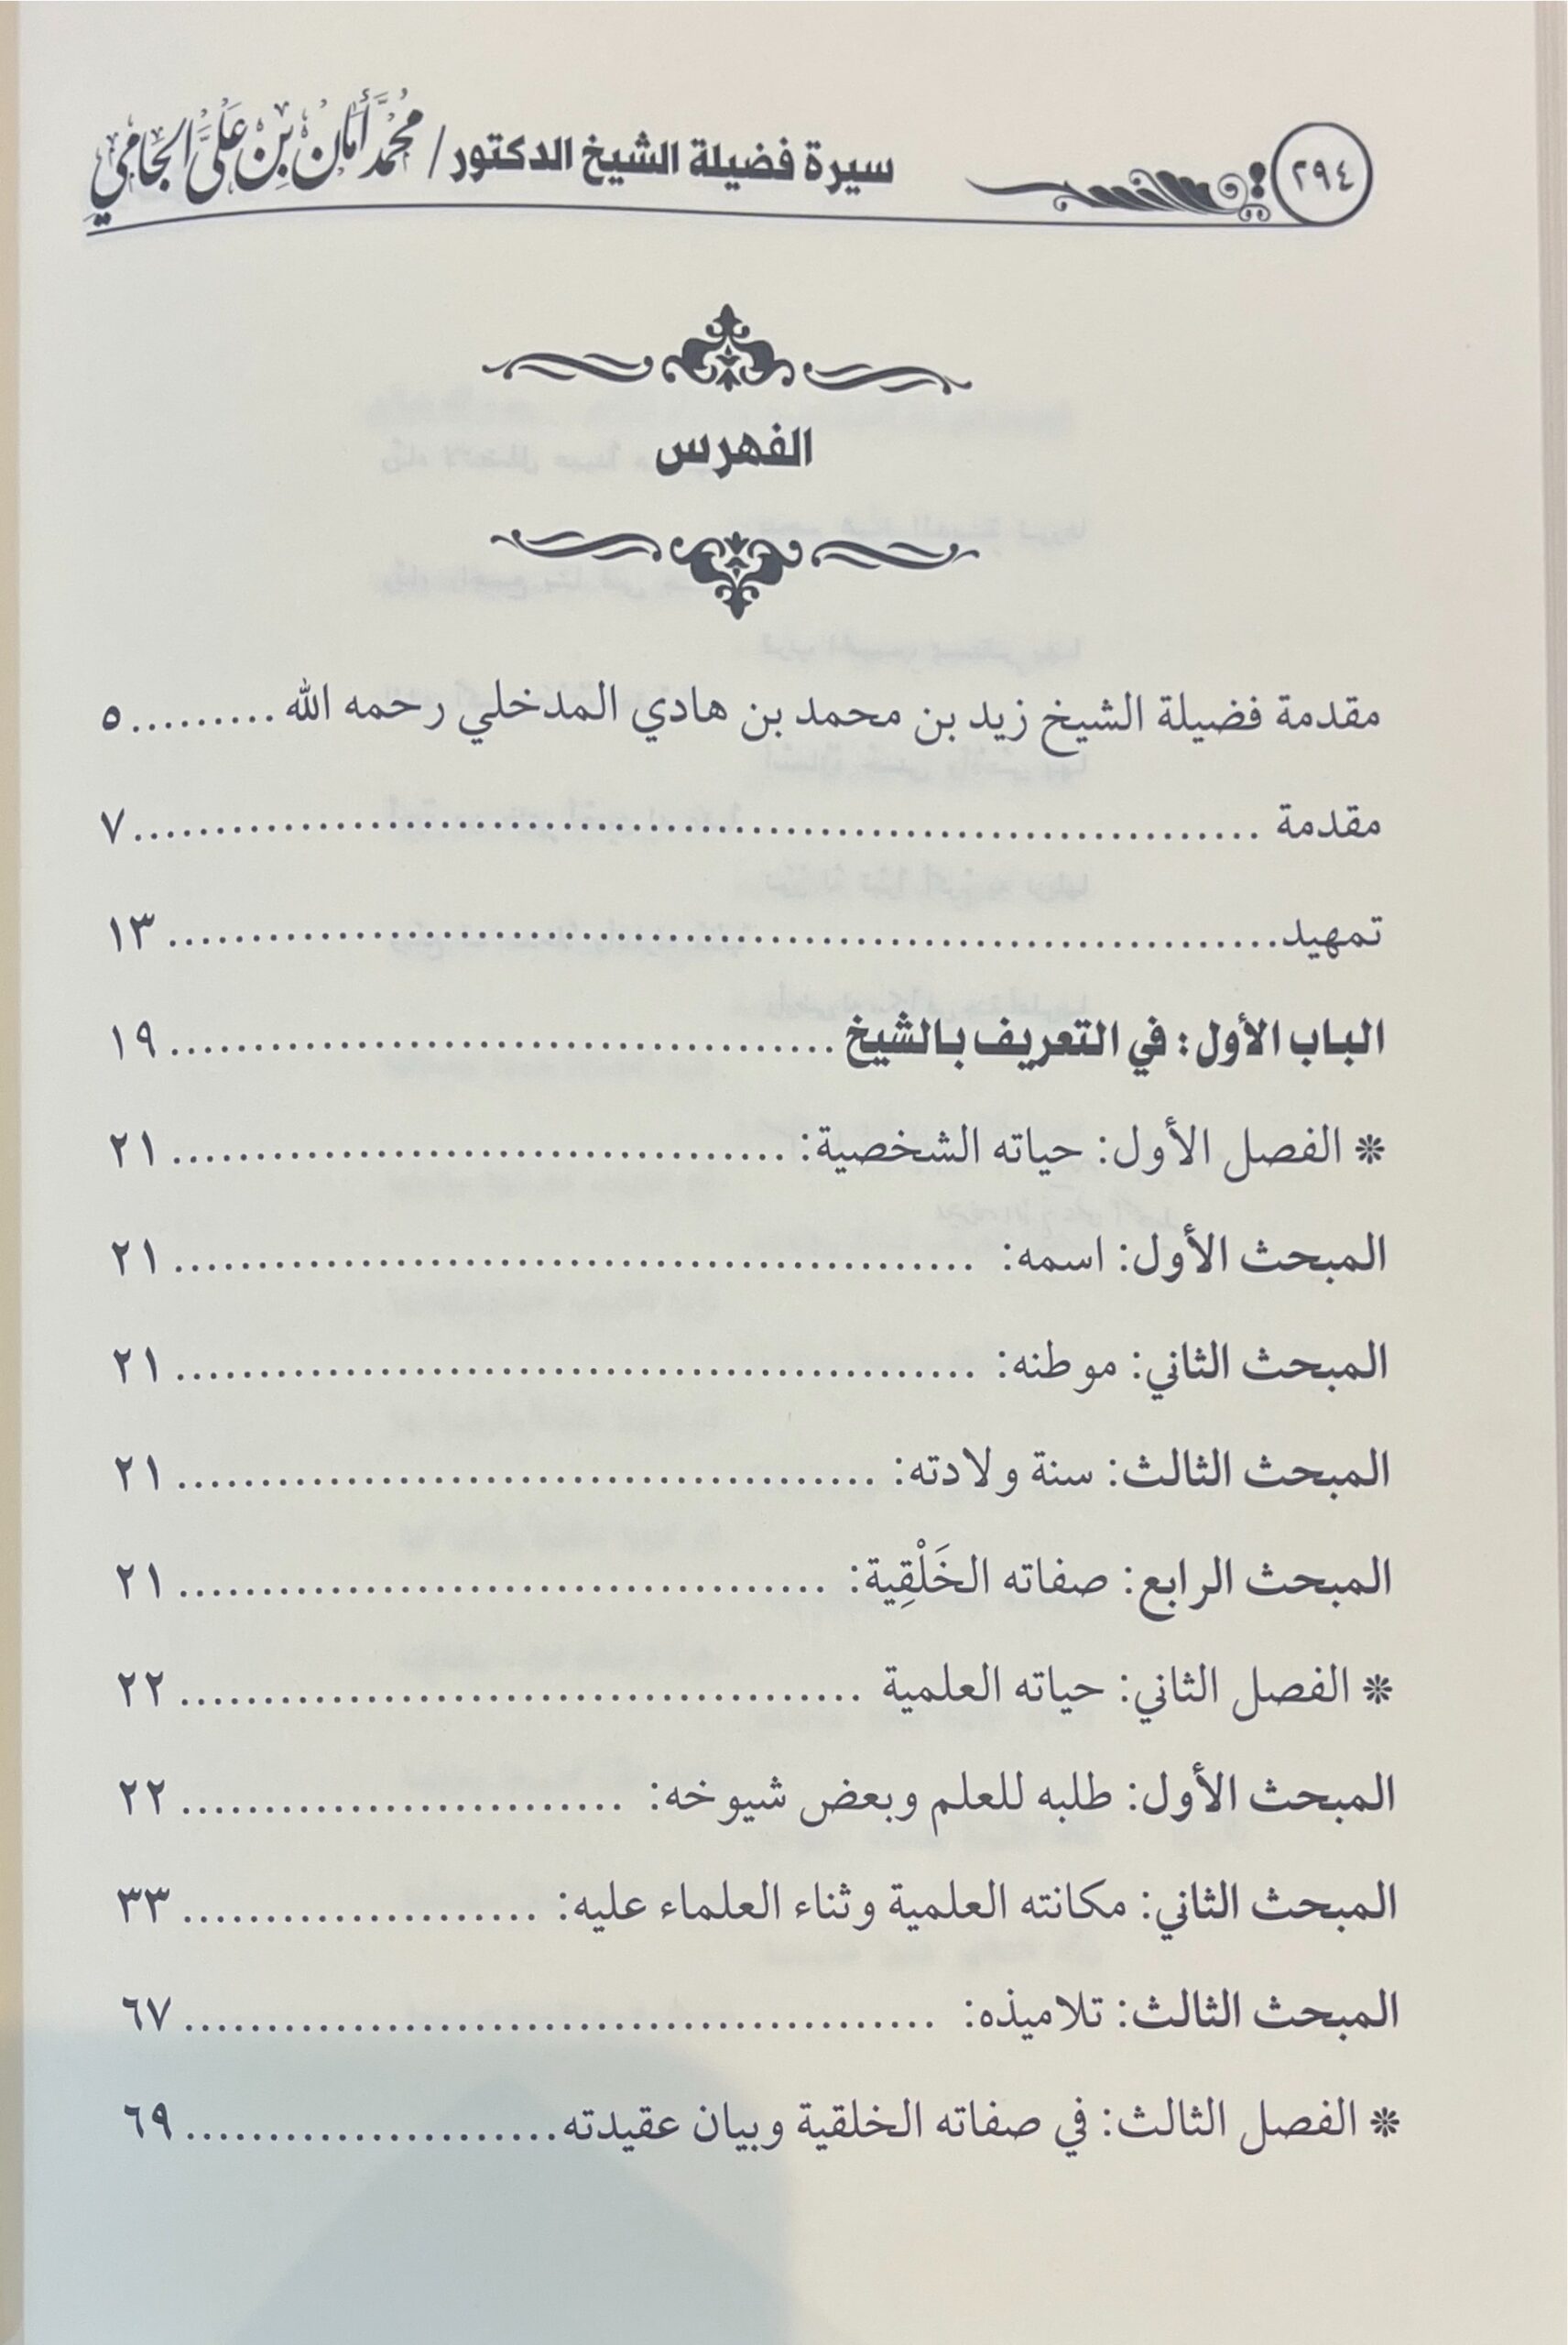 ٢٩٤
سيرة فضيلة الشيخ الدكتور / محمد أمان بن علي الجامي
الفهرس
مقدمة فضيلة الشيخ زيد بن محمد بن هادي المدخلي رحمه الله ......... ٥
مقدمة ......... ٧
تمهيد ......... ١٣
الباب الأول: في التعريف بالشيخ ......... ١٩
❊ الفصل الأول: حياته الشخصية: ......... ٢١
المبحث الأول: اسمه: ......... ٢١
المبحث الثاني: موطنه: ......... ٢١
المبحث الثالث: سنة ولادته: ......... ٢١
المبحث الرابع: صفاته الخَلْقِية: ......... ٢١
❊ الفصل الثاني: حياته العلمية ......... ٢٢
المبحث الأول: طلبه للعلم وبعض شيوخه: ......... ٢٢
المبحث الثاني: مكانته العلمية وثناء العلماء عليه: ......... ٣٣
المبحث الثالث: تلاميذه: ......... ٦٧
❊ الفصل الثالث: في صفاته الخلقية وبيان عقيدته ......... ٦٩